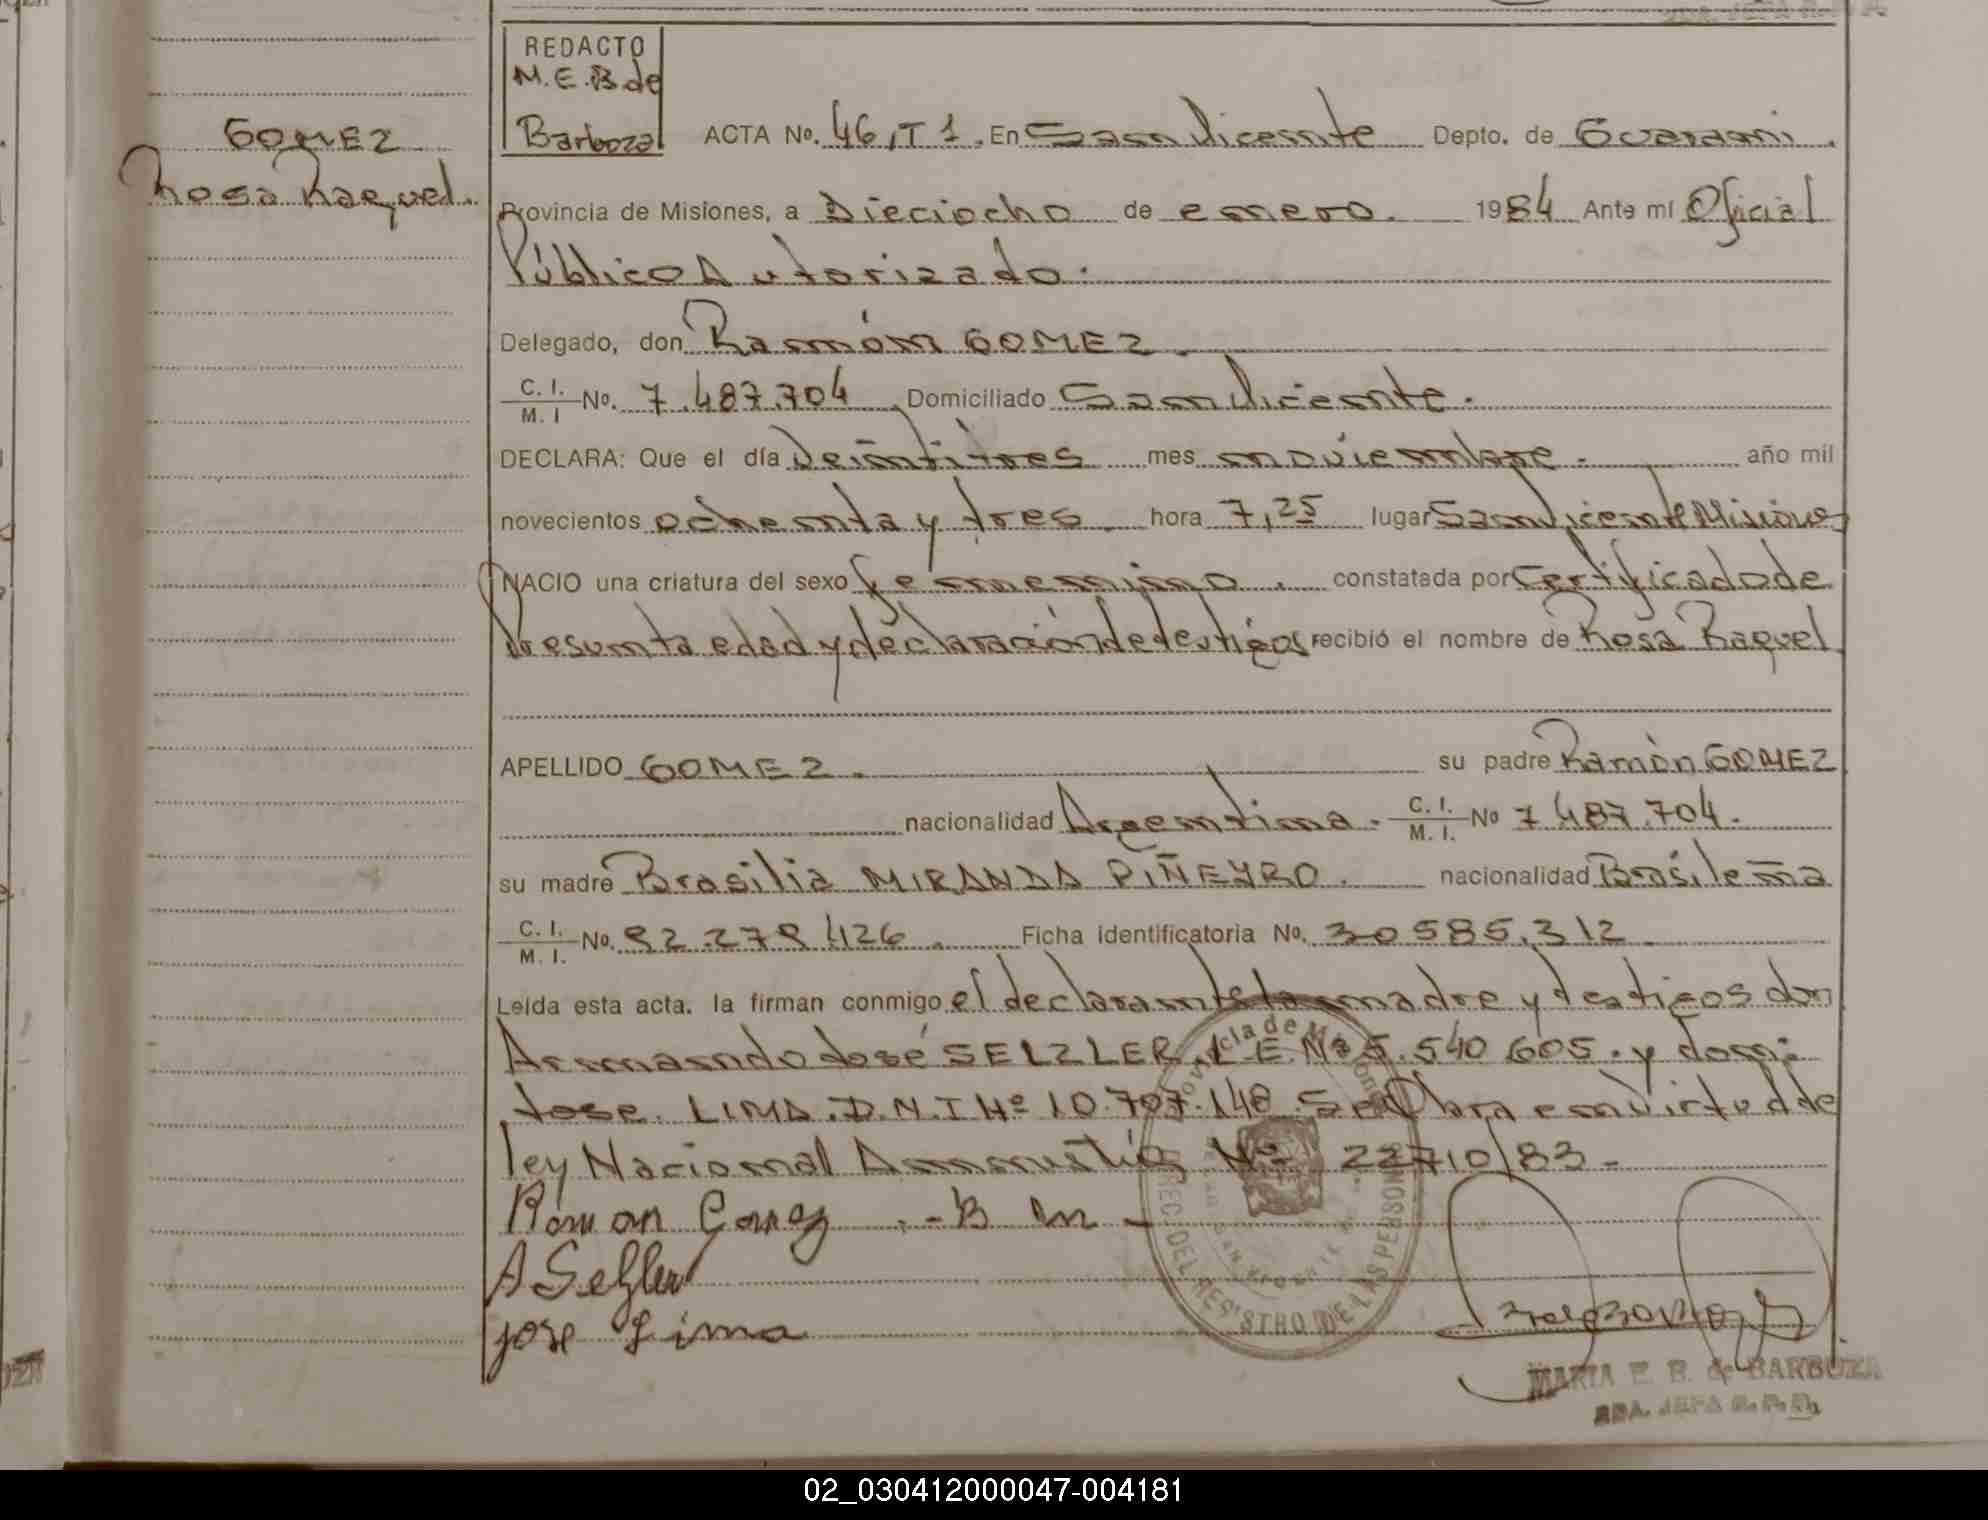 REDACTO
M.E.B de
Barboza
GOMEZ
Rosa Raquel.
ACTA No. 46, T 1. En San Vicente Depto. de Guarani.
Provincia de Misiones, a Dieciocho de enero. 1984 Ante mi Oficial
Público Autorizado.
Delegado, don Ramón GOMEZ.
C. I. / M. I No. 7.487.704 Domiciliado San Vicente.
DECLARA: Que el día Veintitres mes noviembre. año mil
novecientos ochenta y tres hora 7,25 lugar San Vicente Misiones
NACIO una criatura del sexo femenino. constatada por Certificado de
Presunta edad y declaración de testigos recibió el nombre de Rosa Raquel
APELLIDO GOMEZ. su padre Ramón GOMEZ
nacionalidad Argentina. C. I. / M. I. No 7.487.704.
su madre Brasilia MIRANDA PIÑEYRO. nacionalidad Brasileña
C. I. / M. I. No. 92.279.426. Ficha identificatoria No. 30585.312.
Leída esta acta. la firman conmigo el declarante la madre y testigos don
Armando José SELZLER. L.E. Nº 5.540.605. y don:
Jose. LIMA. D.N.I Nº 10.707.148. Se Labra en virtud de
ley Nacional Amnistía Nº 22710/83.-
Ramon Gomez .- B m -
A Selzler
jose Lima
Provincia de Misiones
DIREC. DEL REGISTRO DE LAS PERSONAS
MARIA E. B. de BARBOZA
02_030412000047-004181